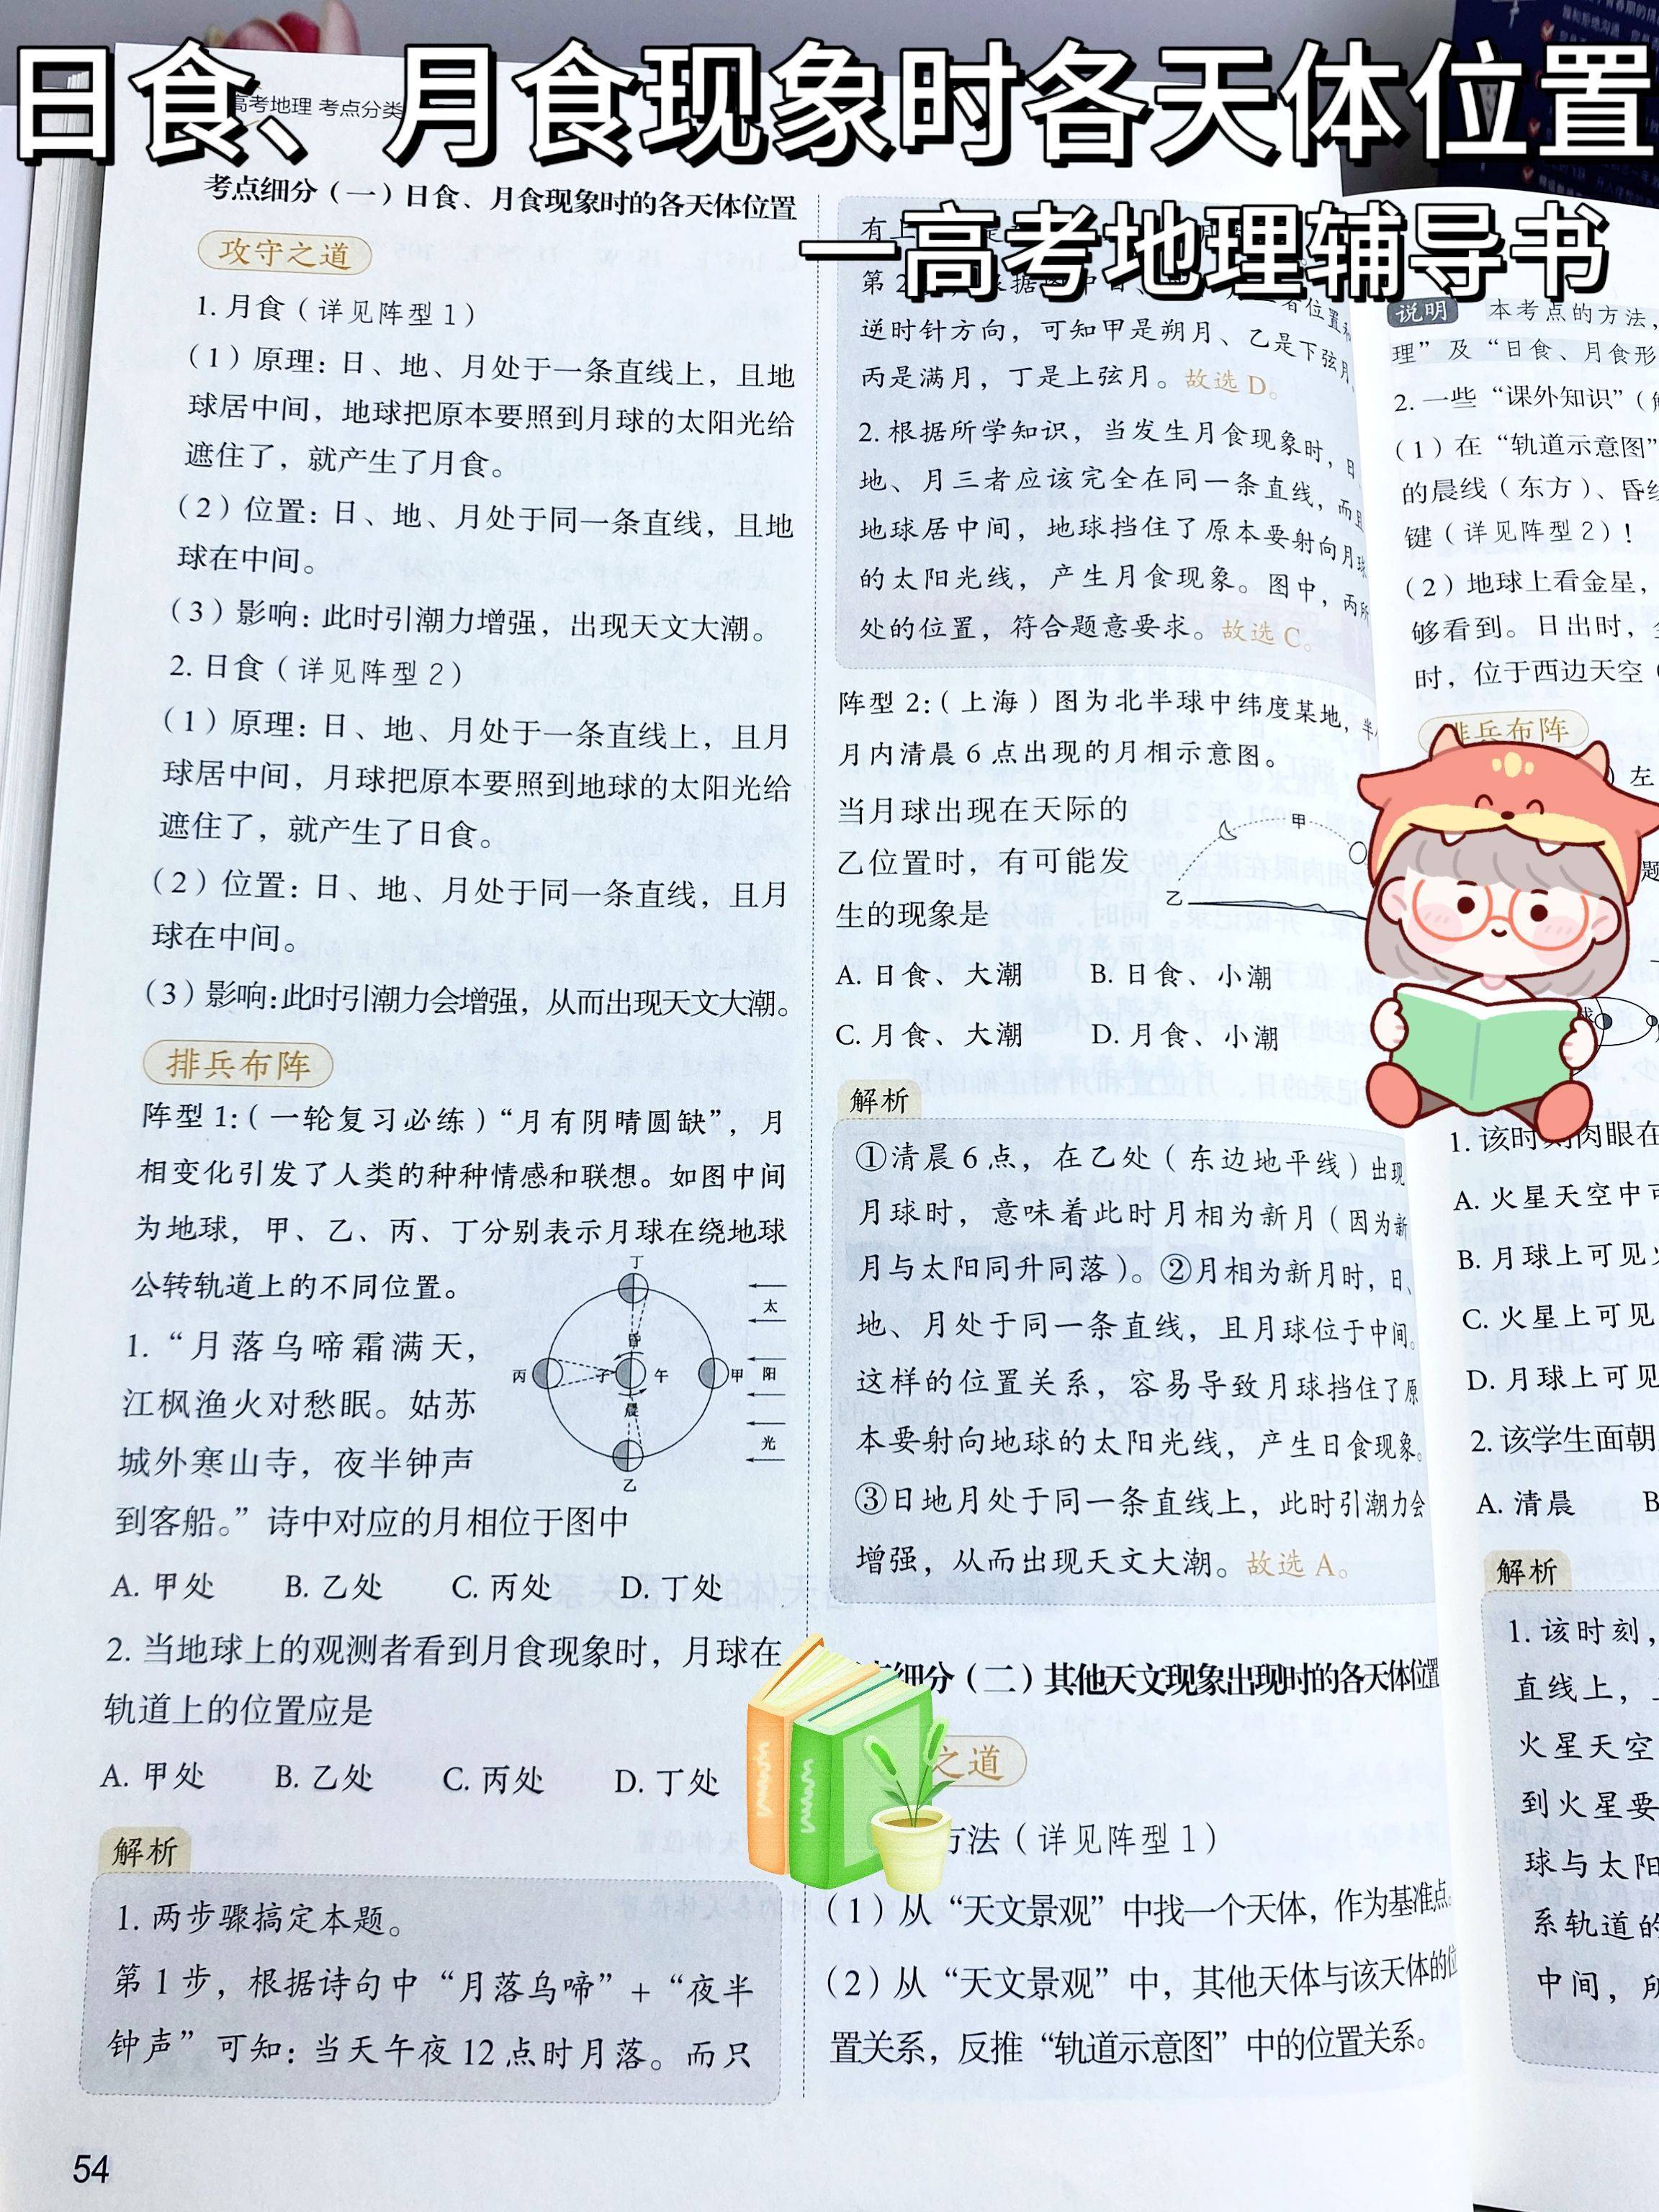 日食、月食现象时各天体位置
—高考地理辅导书
高考地理 考点分类
考点细分（一）日食、月食现象时的各天体位置
攻守之道
1. 月食（详见阵型1）
（1）原理：日、地、月处于一条直线上，且地
球居中间，地球把原本要照到月球的太阳光给
遮住了，就产生了月食。
（2）位置：日、地、月处于同一条直线，且地
球在中间。
（3）影响：此时引潮力增强，出现天文大潮。
2. 日食（详见阵型2）
（1）原理：日、地、月处于一条直线上，且月
球居中间，月球把原本要照到地球的太阳光给
遮住了，就产生了日食。
（2）位置：日、地、月处于同一条直线，且月
球在中间。
（3）影响：此时引潮力会增强，从而出现天文大潮。
排兵布阵
阵型1：（一轮复习必练）“月有阴晴圆缺”，月
相变化引发了人类的种种情感和联想。如图中间
为地球，甲、乙、丙、丁分别表示月球在绕地球
公转轨道上的不同位置。
1. “月落乌啼霜满天，
江枫渔火对愁眠。姑苏
城外寒山寺，夜半钟声
到客船。”诗中对应的月相位于图中
丁
昏
丙 子 午 甲
晨
乙
太
阳
光
A. 甲处 B. 乙处 C. 丙处 D. 丁处
2. 当地球上的观测者看到月食现象时，月球在
轨道上的位置应是
A. 甲处 B. 乙处 C. 丙处 D. 丁处
解析
1. 两步骤搞定本题。
第1步，根据诗句中“月落乌啼”+“夜半
钟声”可知：当天午夜12点时月落。而只
54
有上
第2
逆时针方向，可知甲是朔月、乙是下弦月、
丙是满月，丁是上弦月。故选D。
2. 根据所学知识，当发生月食现象时，日、
地、月三者应该完全在同一条直线，而且
地球居中间，地球挡住了原本要射向月球
的太阳光线，产生月食现象。图中，丙所
处的位置，符合题意要求。故选C。
阵型2：（上海）图为北半球中纬度某地，半
月内清晨6点出现的月相示意图。
当月球出现在天际的
乙位置时，有可能发
生的现象是
甲
乙
A. 日食、大潮 B. 日食、小潮
C. 月食、大潮 D. 月食、小潮
解析
①清晨6点，在乙处（东边地平线）出现
月球时，意味着此时月相为新月（因为新
月与太阳同升同落）。②月相为新月时，日、
地、月处于同一条直线，且月球位于中间。
这样的位置关系，容易导致月球挡住了原
本要射向地球的太阳光线，产生日食现象。
③日地月处于同一条直线上，此时引潮力会
增强，从而出现天文大潮。故选A。
细分（二）其他天文现象出现时的各天体位置
之道
方法（详见阵型1）
（1）从“天文景观”中找一个天体，作为基准点。
（2）从“天文景观”中，其他天体与该天体的位
置关系，反推“轨道示意图”中的位置关系。
说明 本考点的方法，
理”及“日食、月食形
2. 一些“课外知识”（
（1）在“轨道示意图”
的晨线（东方）、昏线
键（详见阵型2）！
（2）地球上看金星，
够看到。日出时，
时，位于西边天空
排兵布阵
左
题
1. 该时刻肉眼在
A. 火星天空中可
B. 月球上可见
C. 火星上可见
D. 月球上可见
2. 该学生面朝
A. 清晨 B
解析
1. 该时刻，
直线上，
火星天空
到火星要
球与太阳
系轨道的
中间，所